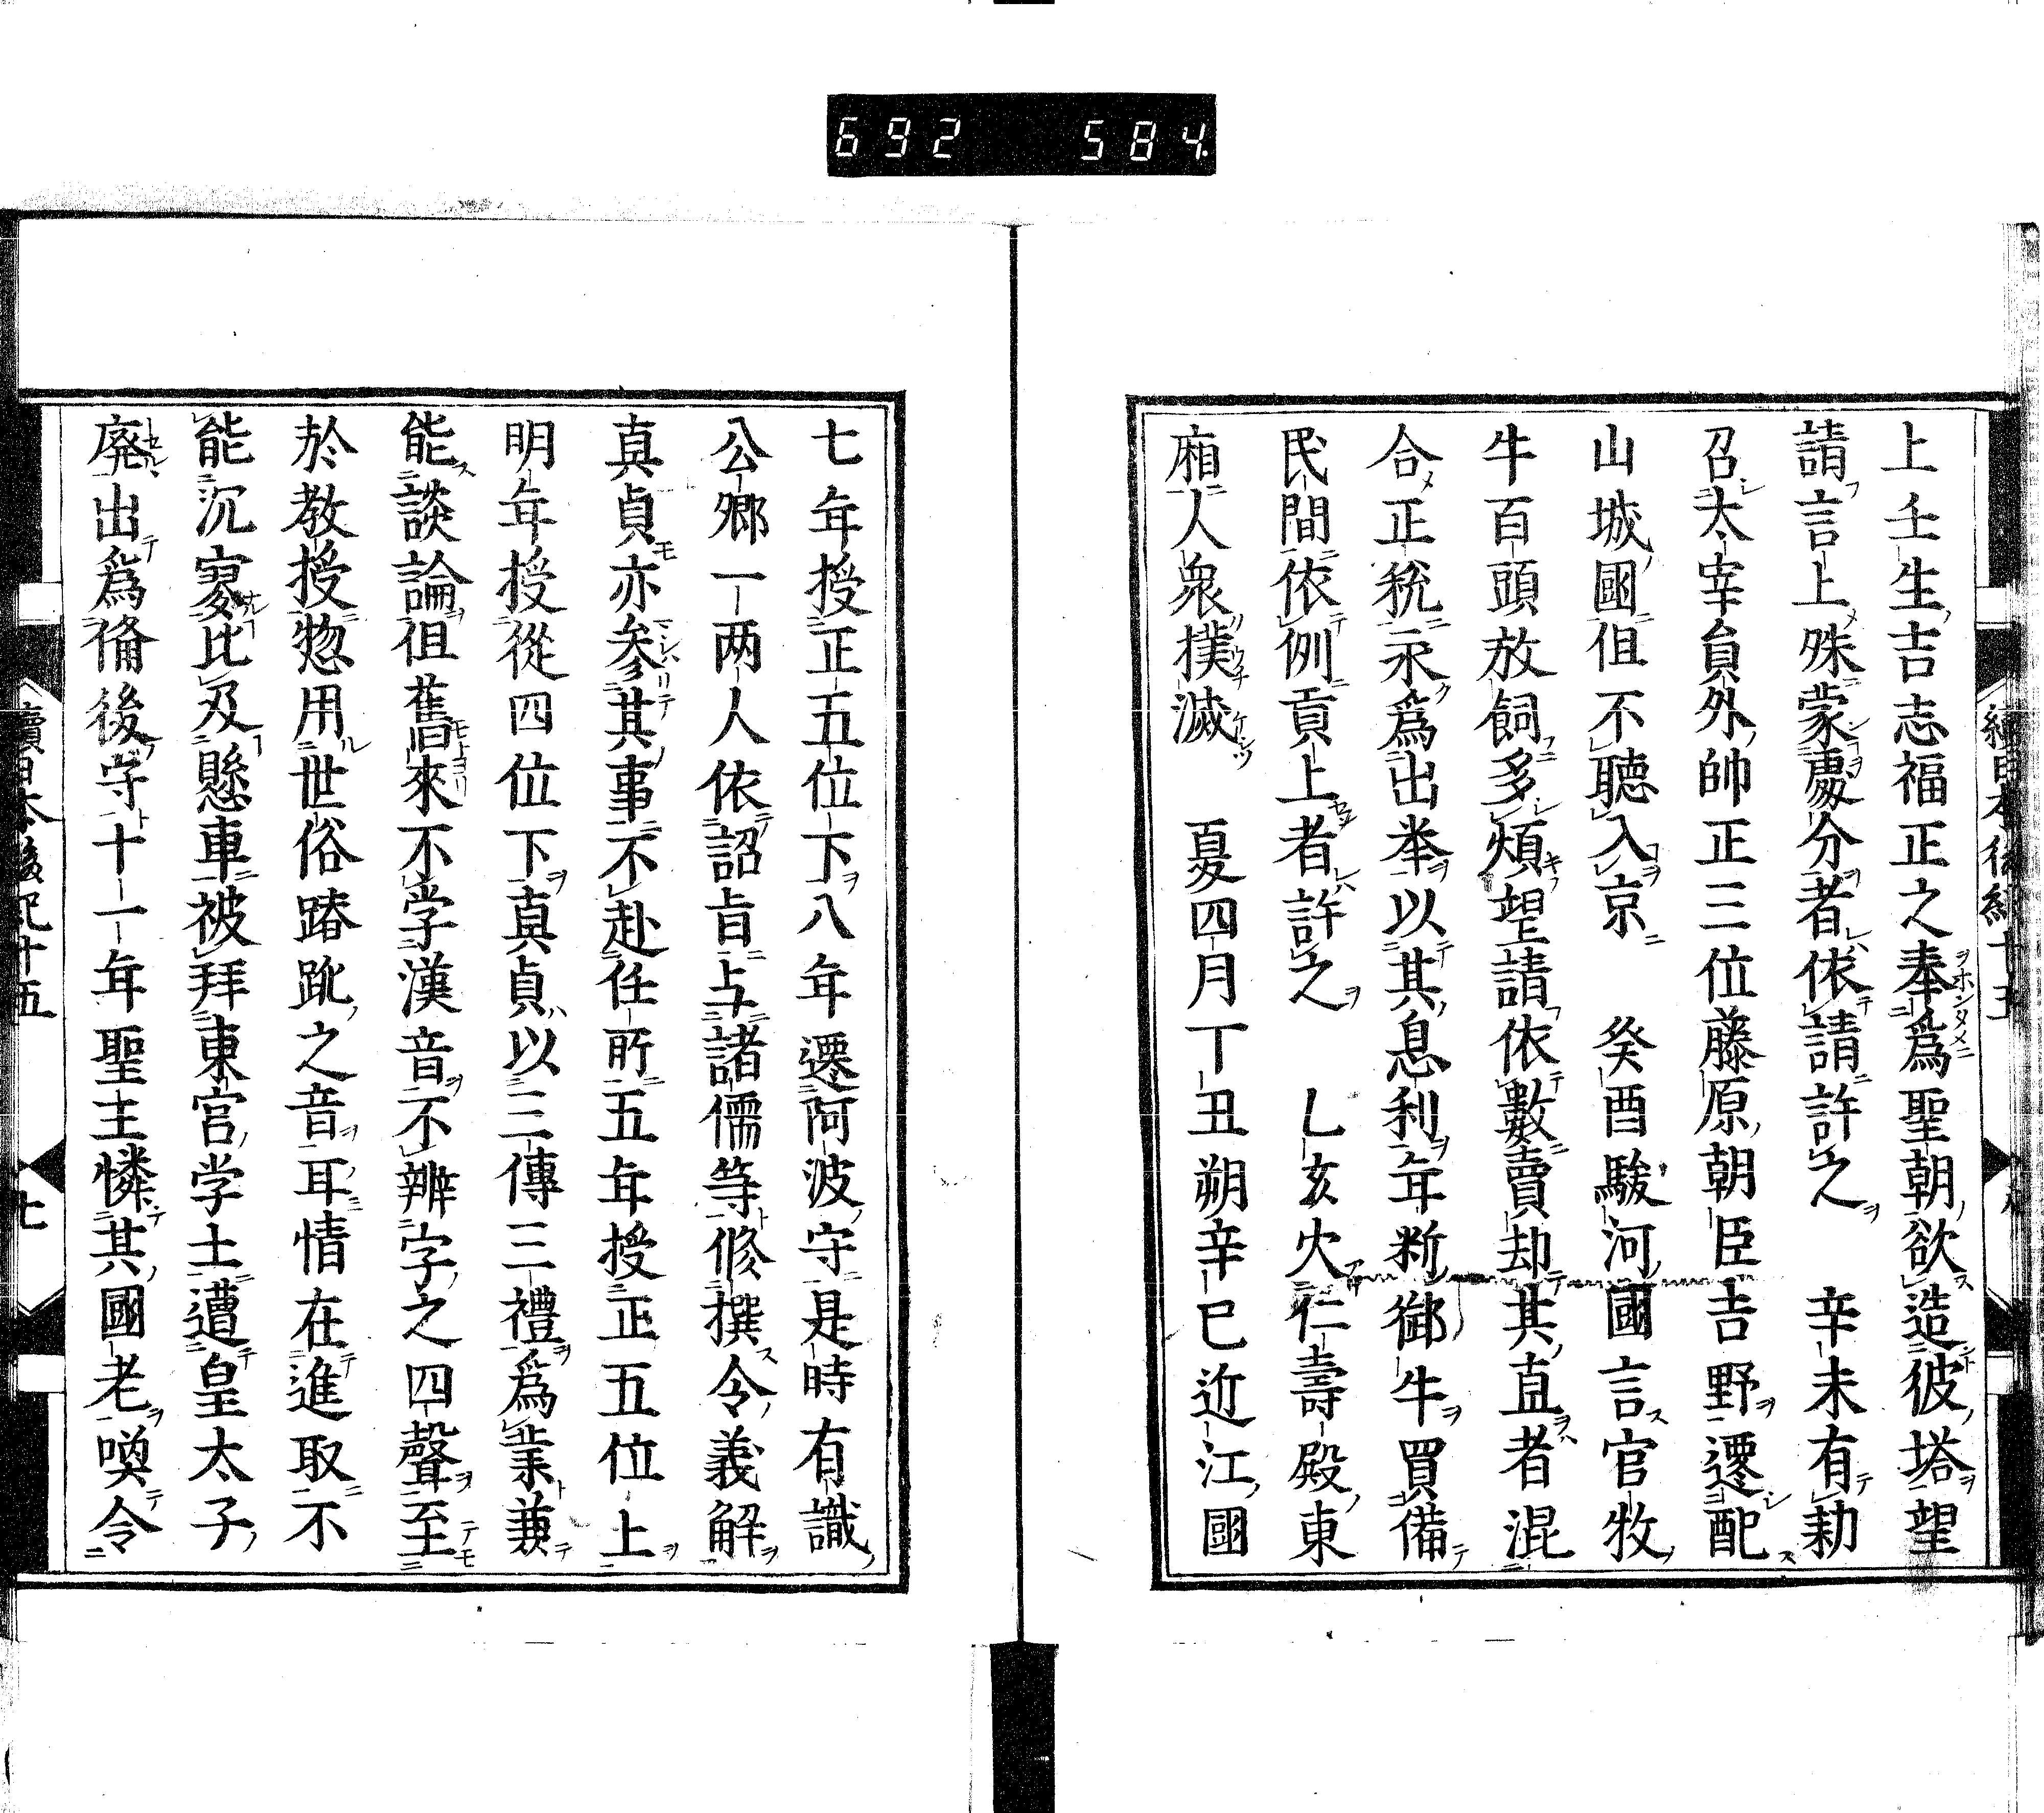 692 584.
上壬生吉志福正之奉爲聖朝欲造彼塔望
請言上殊蒙處分者依請許之　辛未有勅
召太宰員外帥正三位藤原朝臣吉野遷配
山城國但不聽入京　癸酉駿河國言官牧
牛百頭放飼多煩望請依數賣却其直者混
合正稅永爲出举以其息利年断御牛買備
民間依例貢上者許之　乙亥火仁壽殿東
廂人衆撲滅　夏四月丁丑朔辛巳近江國
七年授正五位下八年遷阿波守是時有識
公卿一両人依詔旨上与諸儒等修撰令義解
真貞亦参其事不赴任所五年授正五位上
明年授從四位下真貞以三傳三禮爲業兼
能談論但舊來不学漢音不辨字之四聲至
於教授惣用世俗踳訛之音耳情在進取不
能沉寥比及懸車被拜東宮学士遭皇太子
廃出爲俻後守十一年聖主憐其國老喚令
續日本後紀十五　七